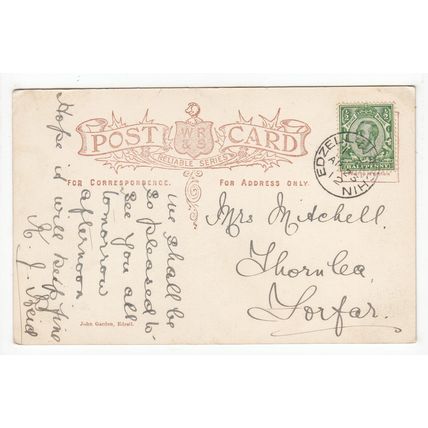 POST CARD
WR
& S
RELIABLE SERIES
FOR CORRESPONDENCE.
FOR ADDRESS ONLY.
EDZELL
HALFPENNY
We shall be
so pleased to
see you all
tomorrow
afternoon
Hope it will keep fine
J. Reid
Mrs Mitchell,
Thornlea,
Forfar.
John Garden, Edzell.